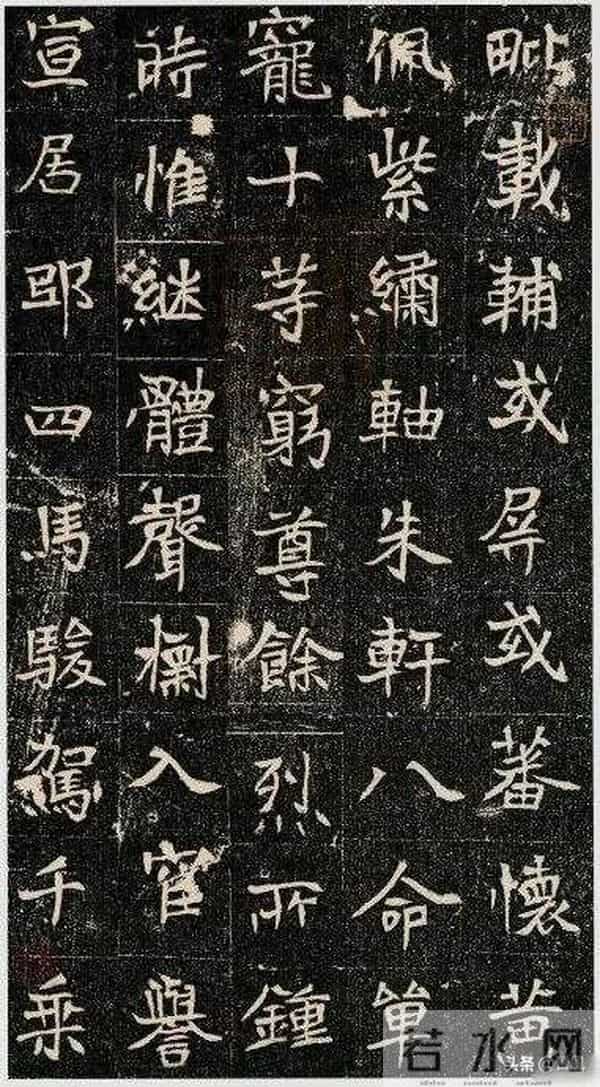 毗載輔或屏或蕃懷黃
佩紫繡軸朱軒八命單
寵十等窮尊餘烈所鍾
時惟継體聲樹入宦譽
宣居邸四馬駿駕千乘
若水网
头条@